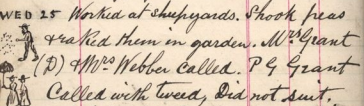 WED 25 Worked at sheepyards. Shook peas
& raked them in garden. Mrs Grant
(D) & Mrs Webber called. P G Grant
Called with tweed, Did not suit.